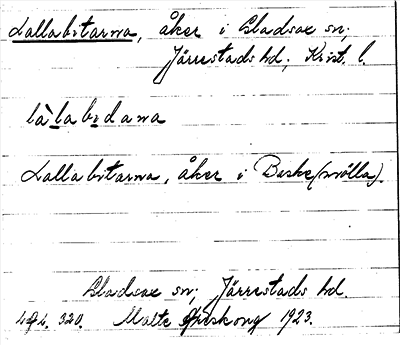 Lallabitarna, åker i Gladsax sn;
Järrestads hd; Krist. l.
là`labidana
Lallabitarna, åker i Beske(mölla).
Gladsax sn; Järrestads hd.
Malte 1923.